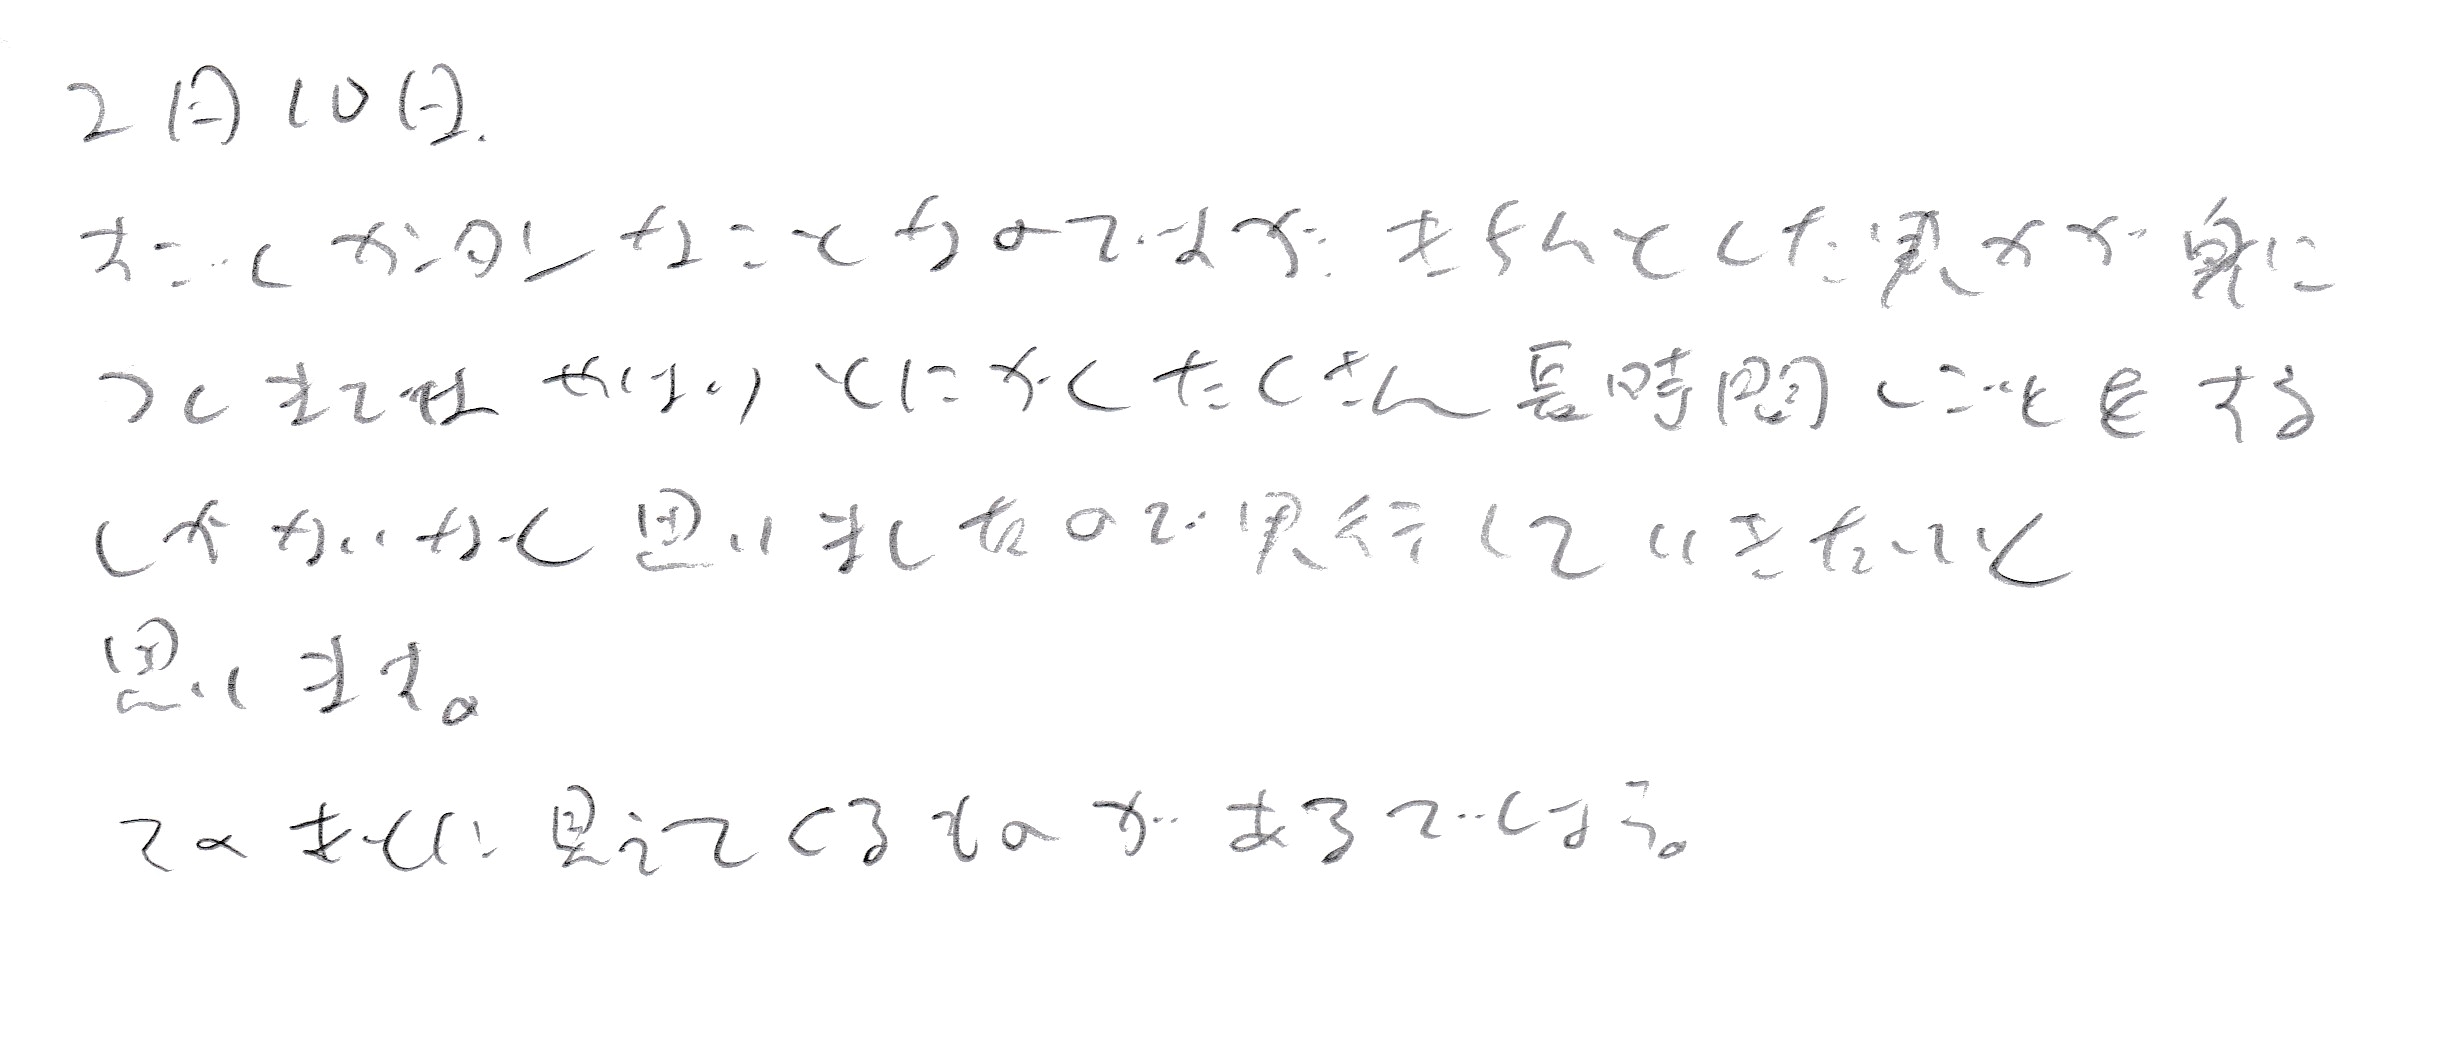 2月10日.
すごくがんたんなことなのですが、きちんとした実力が身に
つくまでは やはり とにかくたくさん長時間しごとをする
しかないかなく思いましたので実行していきたいと
思います。
そのさきに見えてくるものがあるでしょう。